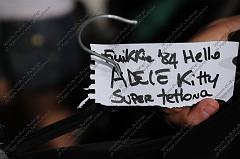 Funkkie '84 Hello
ADELE Kitty
Super tettona